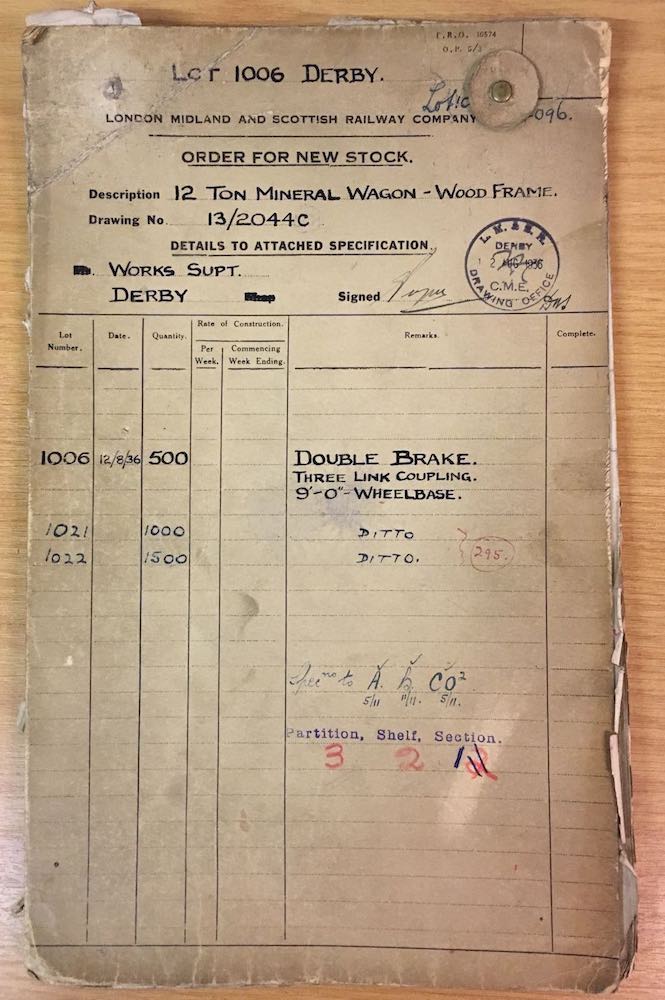 E.R.O. 10574
O.P. 5/3
LOT 1006 DERBY.
LONDON MIDLAND AND SCOTTISH RAILWAY COMPANY
-096.
ORDER FOR NEW STOCK.
Description 12 TON MINERAL WAGON - WOOD FRAME.
Drawing No. 13/2044C
DETAILS TO ATTACHED SPECIFICATION.
L. M. & S. R.
DERBY
12 AUG 1936
C.M.E.
DRAWING OFFICE
WORKS SUPT.
DERBY
Signed
Lot Number. Date. Quantity. Rate of Construction. Per Week. Commencing Week Ending. Remarks. Complete.
1006 12/8/36 500 DOUBLE BRAKE.
THREE LINK COUPLING.
9'-0" WHEELBASE.
1021 1000 DITTO
1022 1500 DITTO. 295.
Spec no to A. CO²
5/11 11/11. 5/11.
Partition, Shelf, Section.
3 2